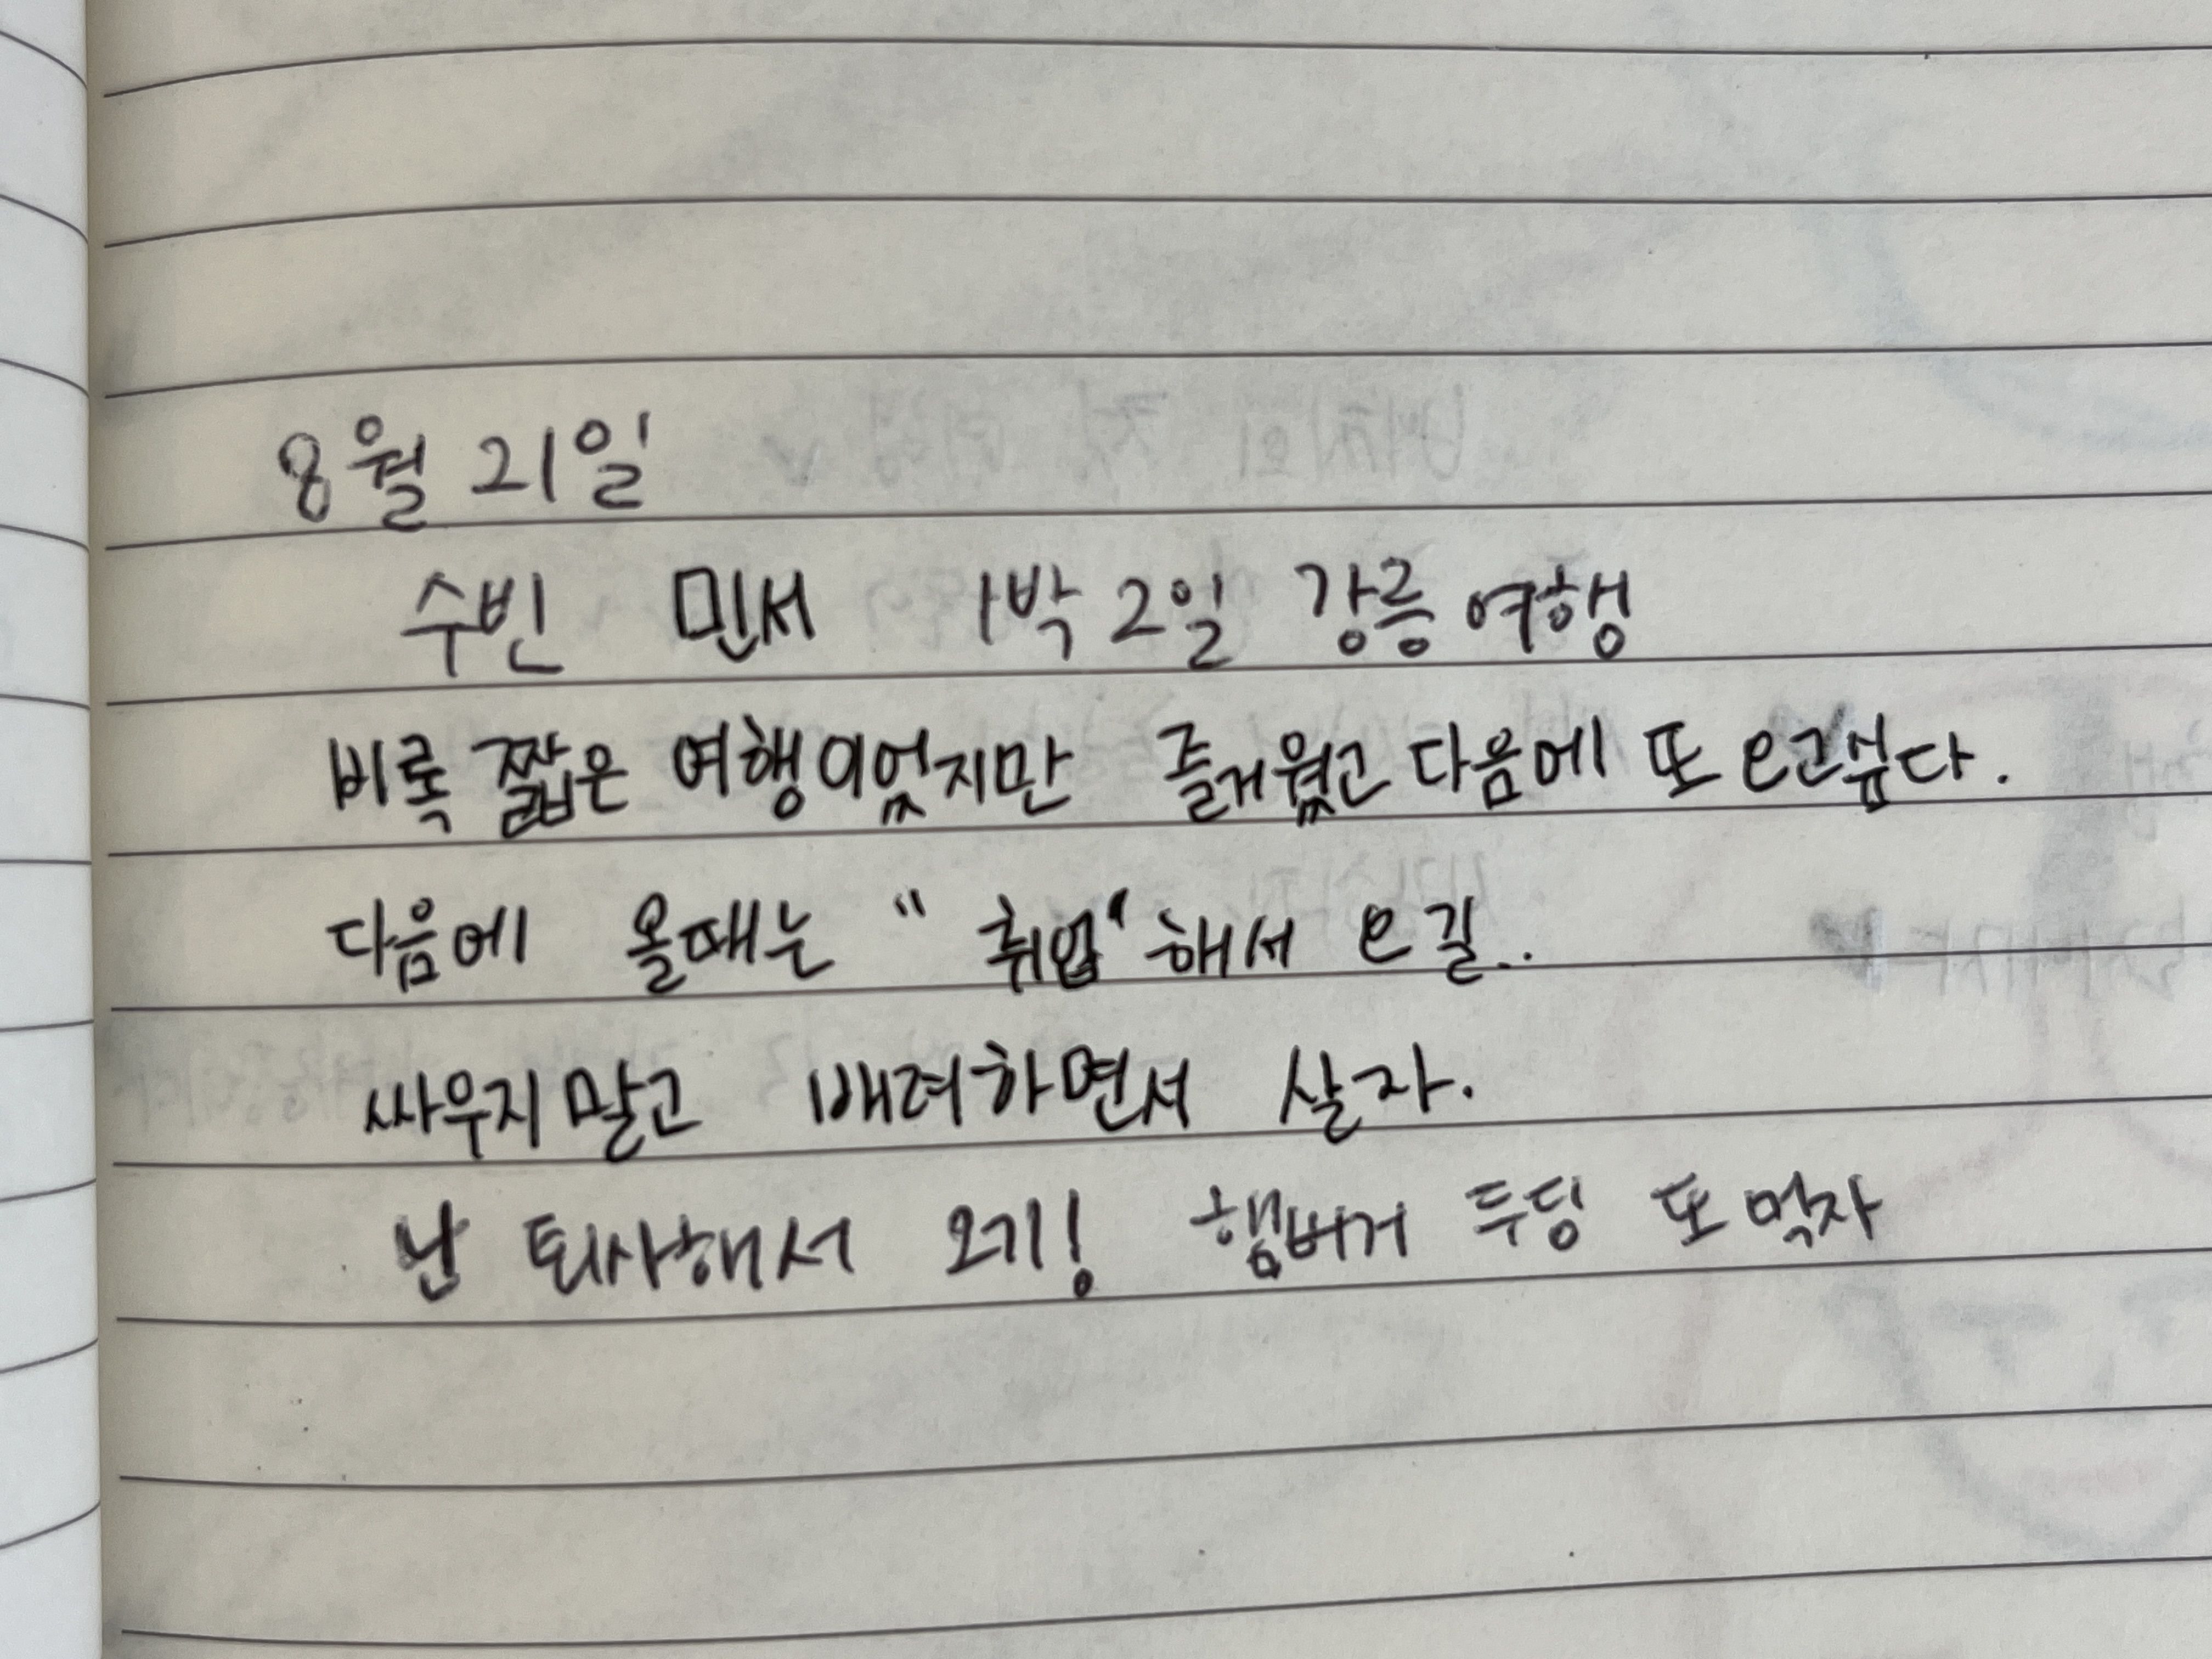 8월 21일
수빈 민서 1박 2일 강릉 여행
비록 짧은 여행이었지만 즐거웠고 다음에 또 오고싶다.
다음에 올때는 "취업"해서 오길..
싸우지말고 배려하면서 살자.
난 퇴사해서 오기! 햄버거 두딩 또 먹자